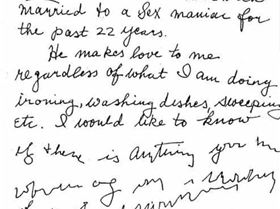 married to a Sex maniac for
the past 22 years.
He makes love to me
regardless of what I am doing
ironing, washing dishes, sweeping
etc. I would like to know
if there is anything you